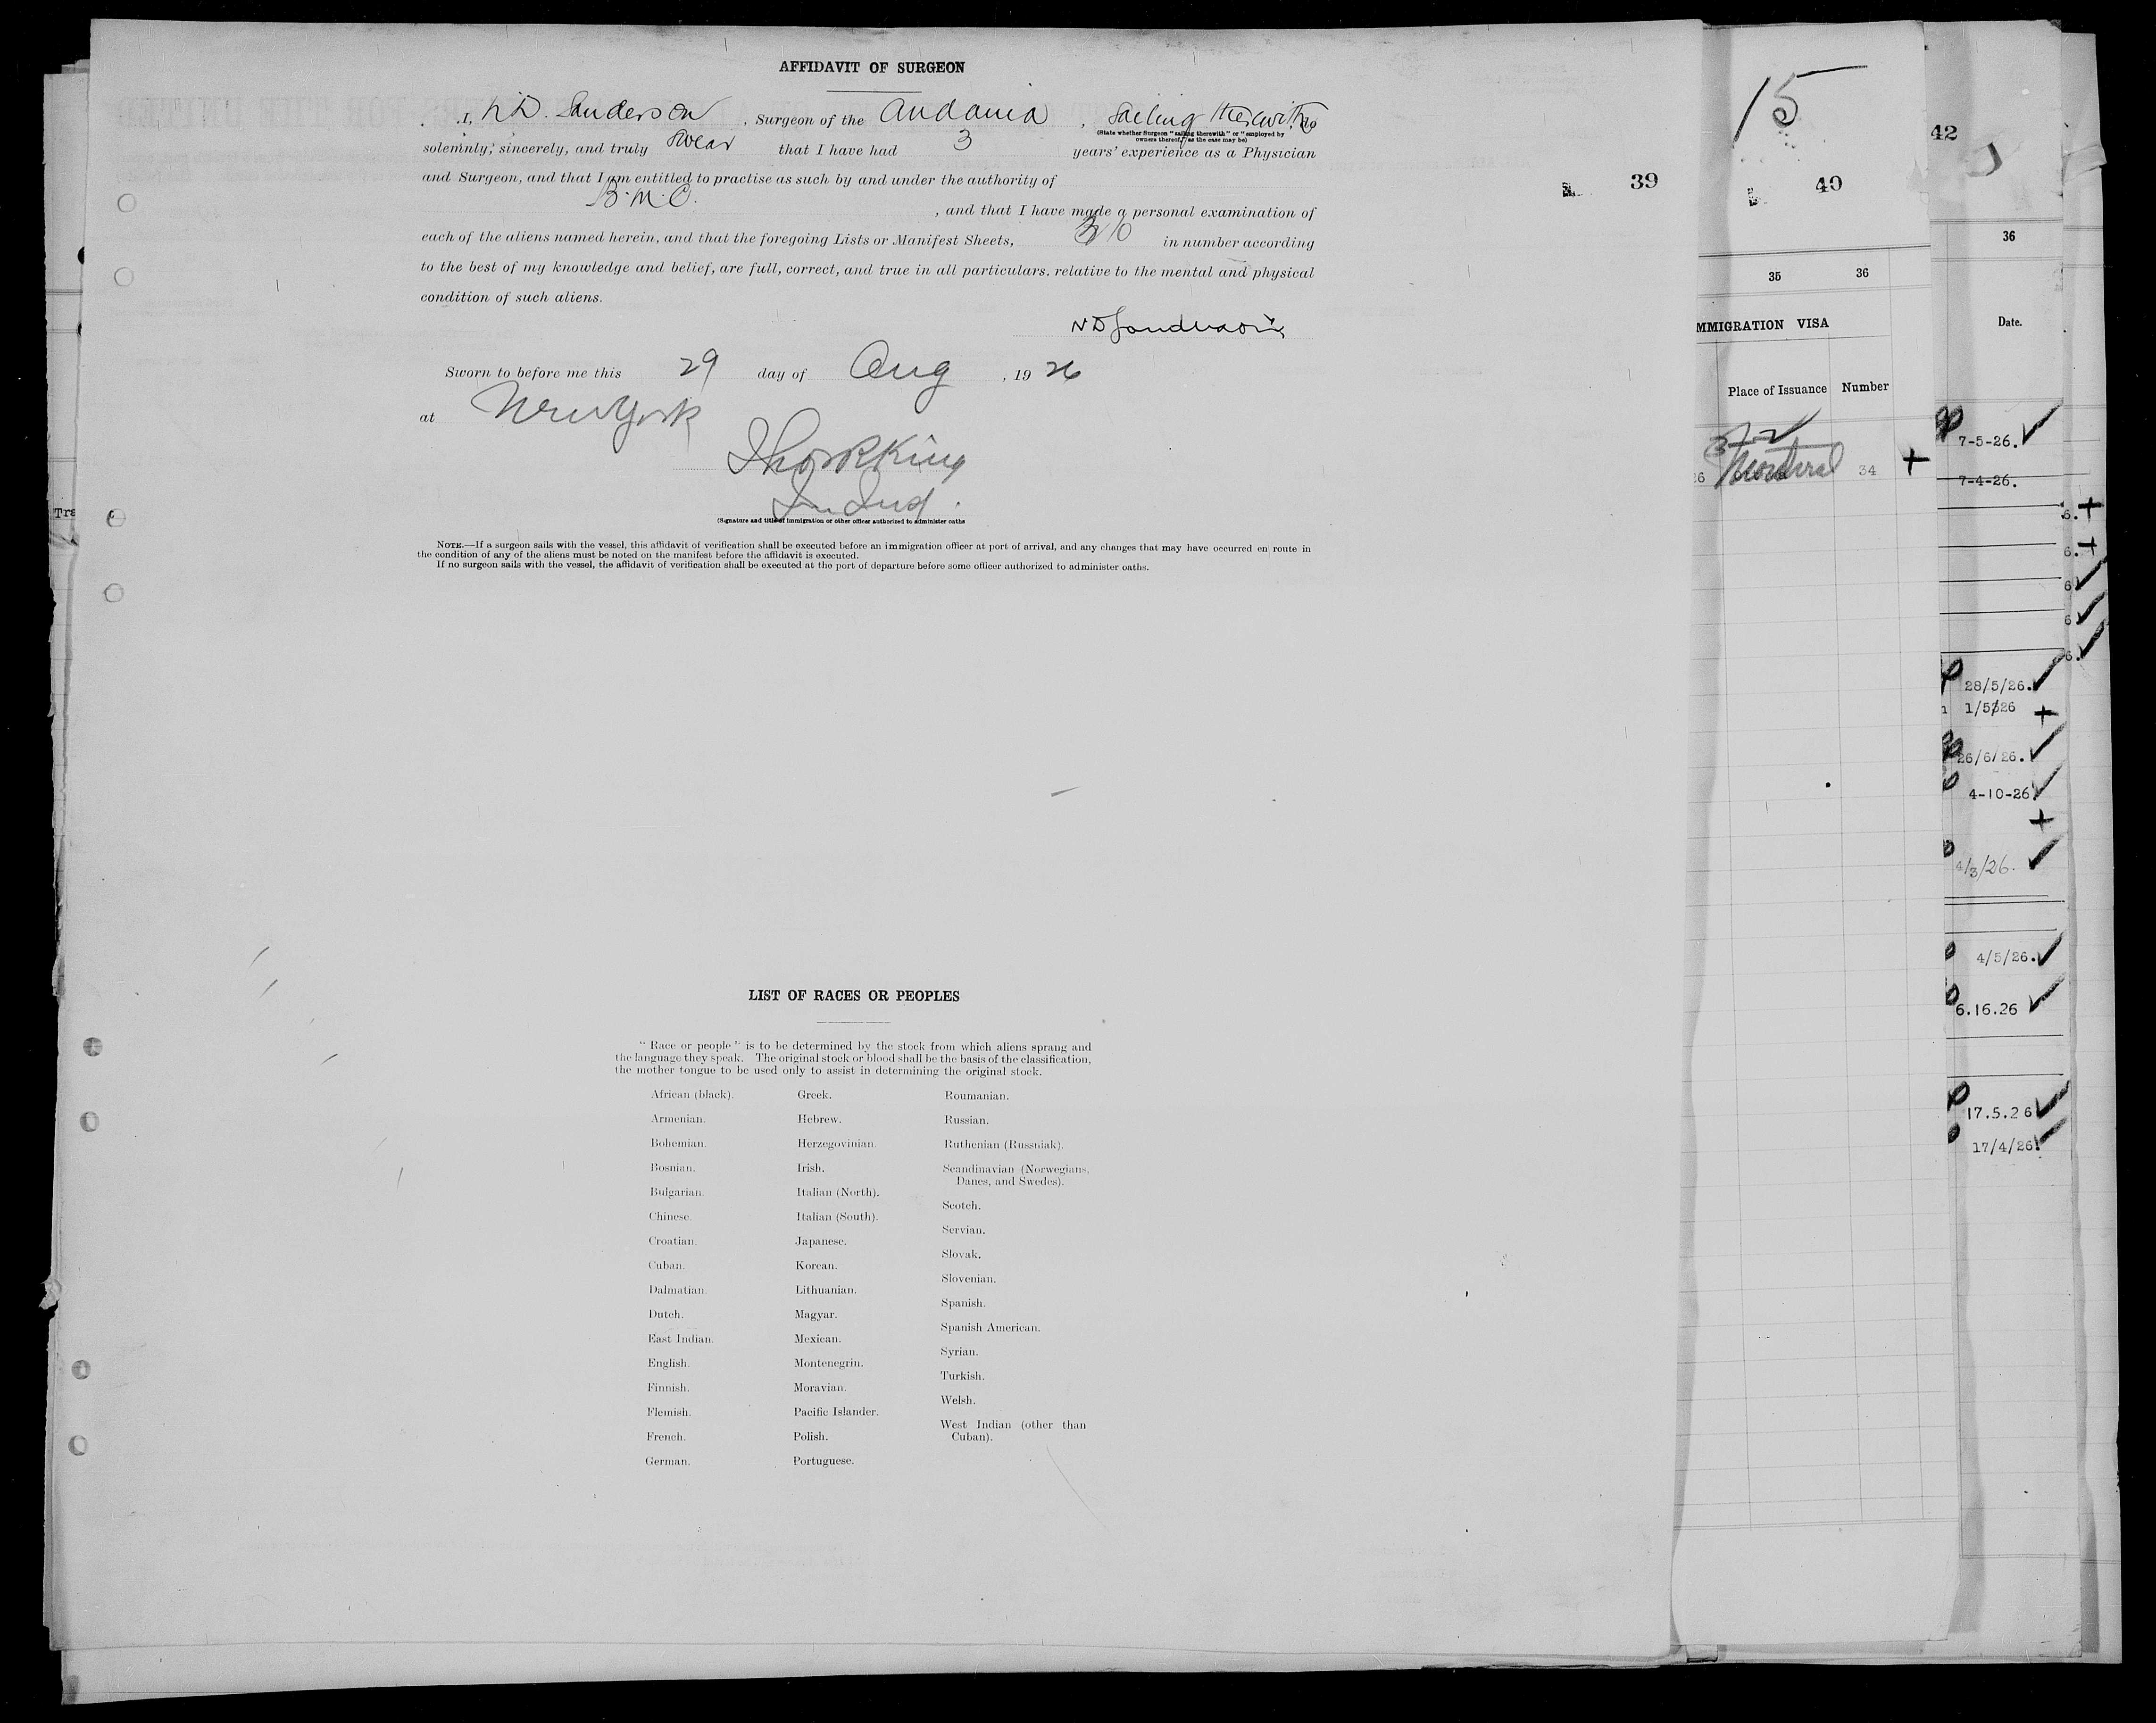 AFFIDAVIT OF SURGEON
I, N D. Sanderson, Surgeon of the Andania, Sailing therewith, do
(State whether Surgeon "sailing therewith" or "employed by
owners thereof," as the case may be)
solemnly, sincerely, and truly swear that I have had 3 years' experience as a Physician
and Surgeon, and that I am entitled to practise as such by and under the authority of
B.M.C. , and that I have made a personal examination of
each of the aliens named herein, and that the foregoing Lists or Manifest Sheets, in number according
to the best of my knowledge and belief, are full, correct, and true in all particulars. relative to the mental and physical
condition of such aliens.
N D Sanderson
Sworn to before me this 29 day of Aug , 19 26
at New York
King
(Signature and title of immigration or other officer authorized to administer oaths
NOTE.—If a surgeon sails with the vessel, this affidavit of verification shall be executed before an immigration officer at port of arrival, and any changes that may have occurred en route in
the condition of any of the aliens must be noted on the manifest before the affidavit is executed.
If no surgeon sails with the vessel, the affidavit of verification shall be executed at the port of departure before some officer authorized to administer oaths.
LIST OF RACES OR PEOPLES
"Race or people" is to be determined by the stock from which aliens sprang and
the language they speak. The original stock or blood shall be the basis of the classification,
the mother tongue to be used only to assist in determining the original stock.
African (black).
Armenian.
Bohemian.
Bosnian.
Bulgarian.
Chinese.
Croatian.
Cuban.
Dalmatian.
Dutch.
East Indian.
English.
Finnish.
Flemish.
French.
German.
Greek.
Hebrew.
Herzegovinian.
Irish.
Italian (North).
Italian (South).
Japanese.
Korean.
Lithuanian.
Magyar.
Mexican.
Montenegrin.
Moravian.
Pacific Islander.
Polish.
Portuguese.
Roumanian.
Russian.
Ruthenian (Russniak).
Scandinavian (Norwegians,
Danes, and Swedes).
Scotch.
Servian.
Slovak.
Slovenian.
Spanish.
Spanish American.
Syrian.
Turkish.
Welsh.
West Indian (other than
Cuban).
39
15
40
35 36
MMIGRATION VISA
Place of Issuance Number
Montreal 34
42
36
Date.
7-5-26.
7-4-26.
28/5/26.
1/5/26
26/6/26.
4-10-26
4/3/26.
4/5/26.
6.16.26
17.5.26
17/4/26
Tra